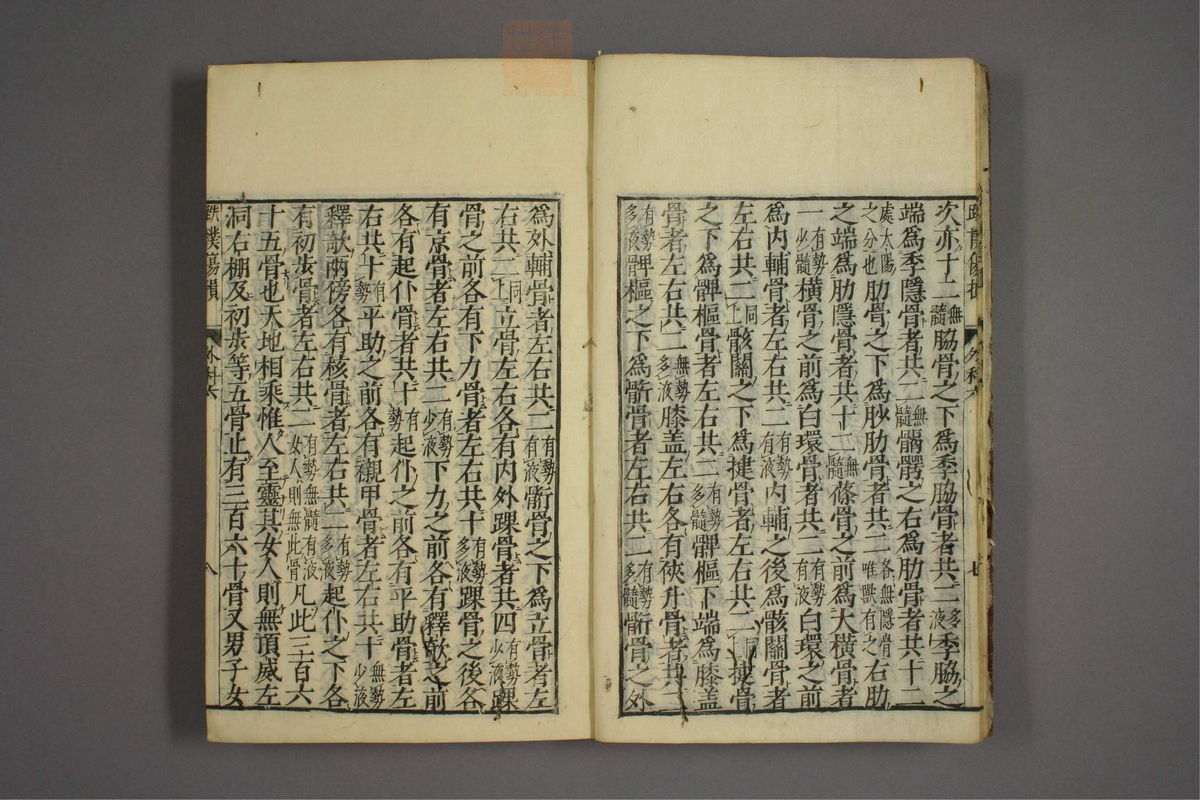 次亦十二無髓脇骨之下為季脇骨者共二多液季脇之
端為季隱骨者共二無髓髑髏之右為肋骨者共十二
處太陽之分也肋骨之下為䏚肋骨者共二各無隱骨唯獸有之右肋
之端為肋隱骨者共十二無髓篠骨之前為大橫骨者
一有勢少髓橫骨之前為白環骨者共二有勢有液白環之前
為內輔骨者左右共二有勢有液內輔之後為骸關骨者
左右共二同上骸關之下為揵骨者左右共二同上揵骨
之下為髀樞骨者左右共二有勢多髓髀樞下端為膝盖
骨者左右共二無勢多液膝盖左右各有俠升骨者共二
有勢多液髀樞之下為骱骨者左右共二有勢多髓骱骨之外
為外輔骨者左右共二有勢有液骱骨之下為立骨者左
右共二同上立骨左右各有內外踝骨者共四有勢少液踝
骨之前各有下力骨者左右共十有勢多液踝骨之後各
有京骨者左右共二有勢少液下力之前各有釋欹之前
各有起仆骨者共十有勢起仆之前各有平助骨者左
右共十有勢平助之前各有襯甲骨者左右共十無勢少液
釋欹兩傍各有核骨者左右共二有勢多液起仆之下各
有初步骨者左右共二有勢無髓有液女人則無此骨凡此三百六
十五骨也天地相乘惟人至靈其女人則無頂威左
洞右棚及初步等五骨止有三百六十骨又男子女
跌撲傷損 外科六 八